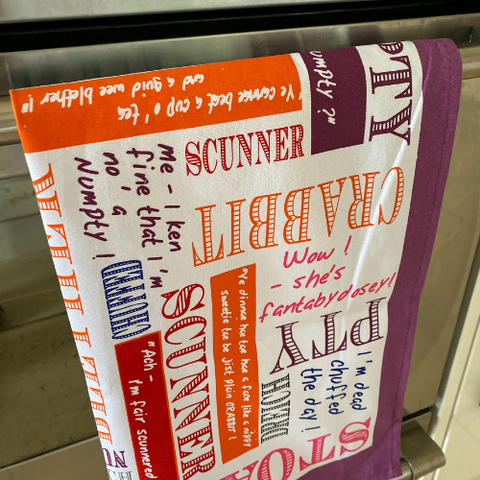 "Ye canna beat a cup o' tea
and a guid wee blether!"
umpty?"
PTY
SCUNNER
CRABBIT
Me - I ken
fine that I'm
no' a
Numpty!
Wow!
- she's
fantabydosey!
SCUNNER
"Ye dinna hae tae hae a face like a nippy
sweetie tae be jist plain CRABBIT!
PTY
I'm dead
chuffed
the day!
"Ach -
I'm fair scunnered
STO
NU